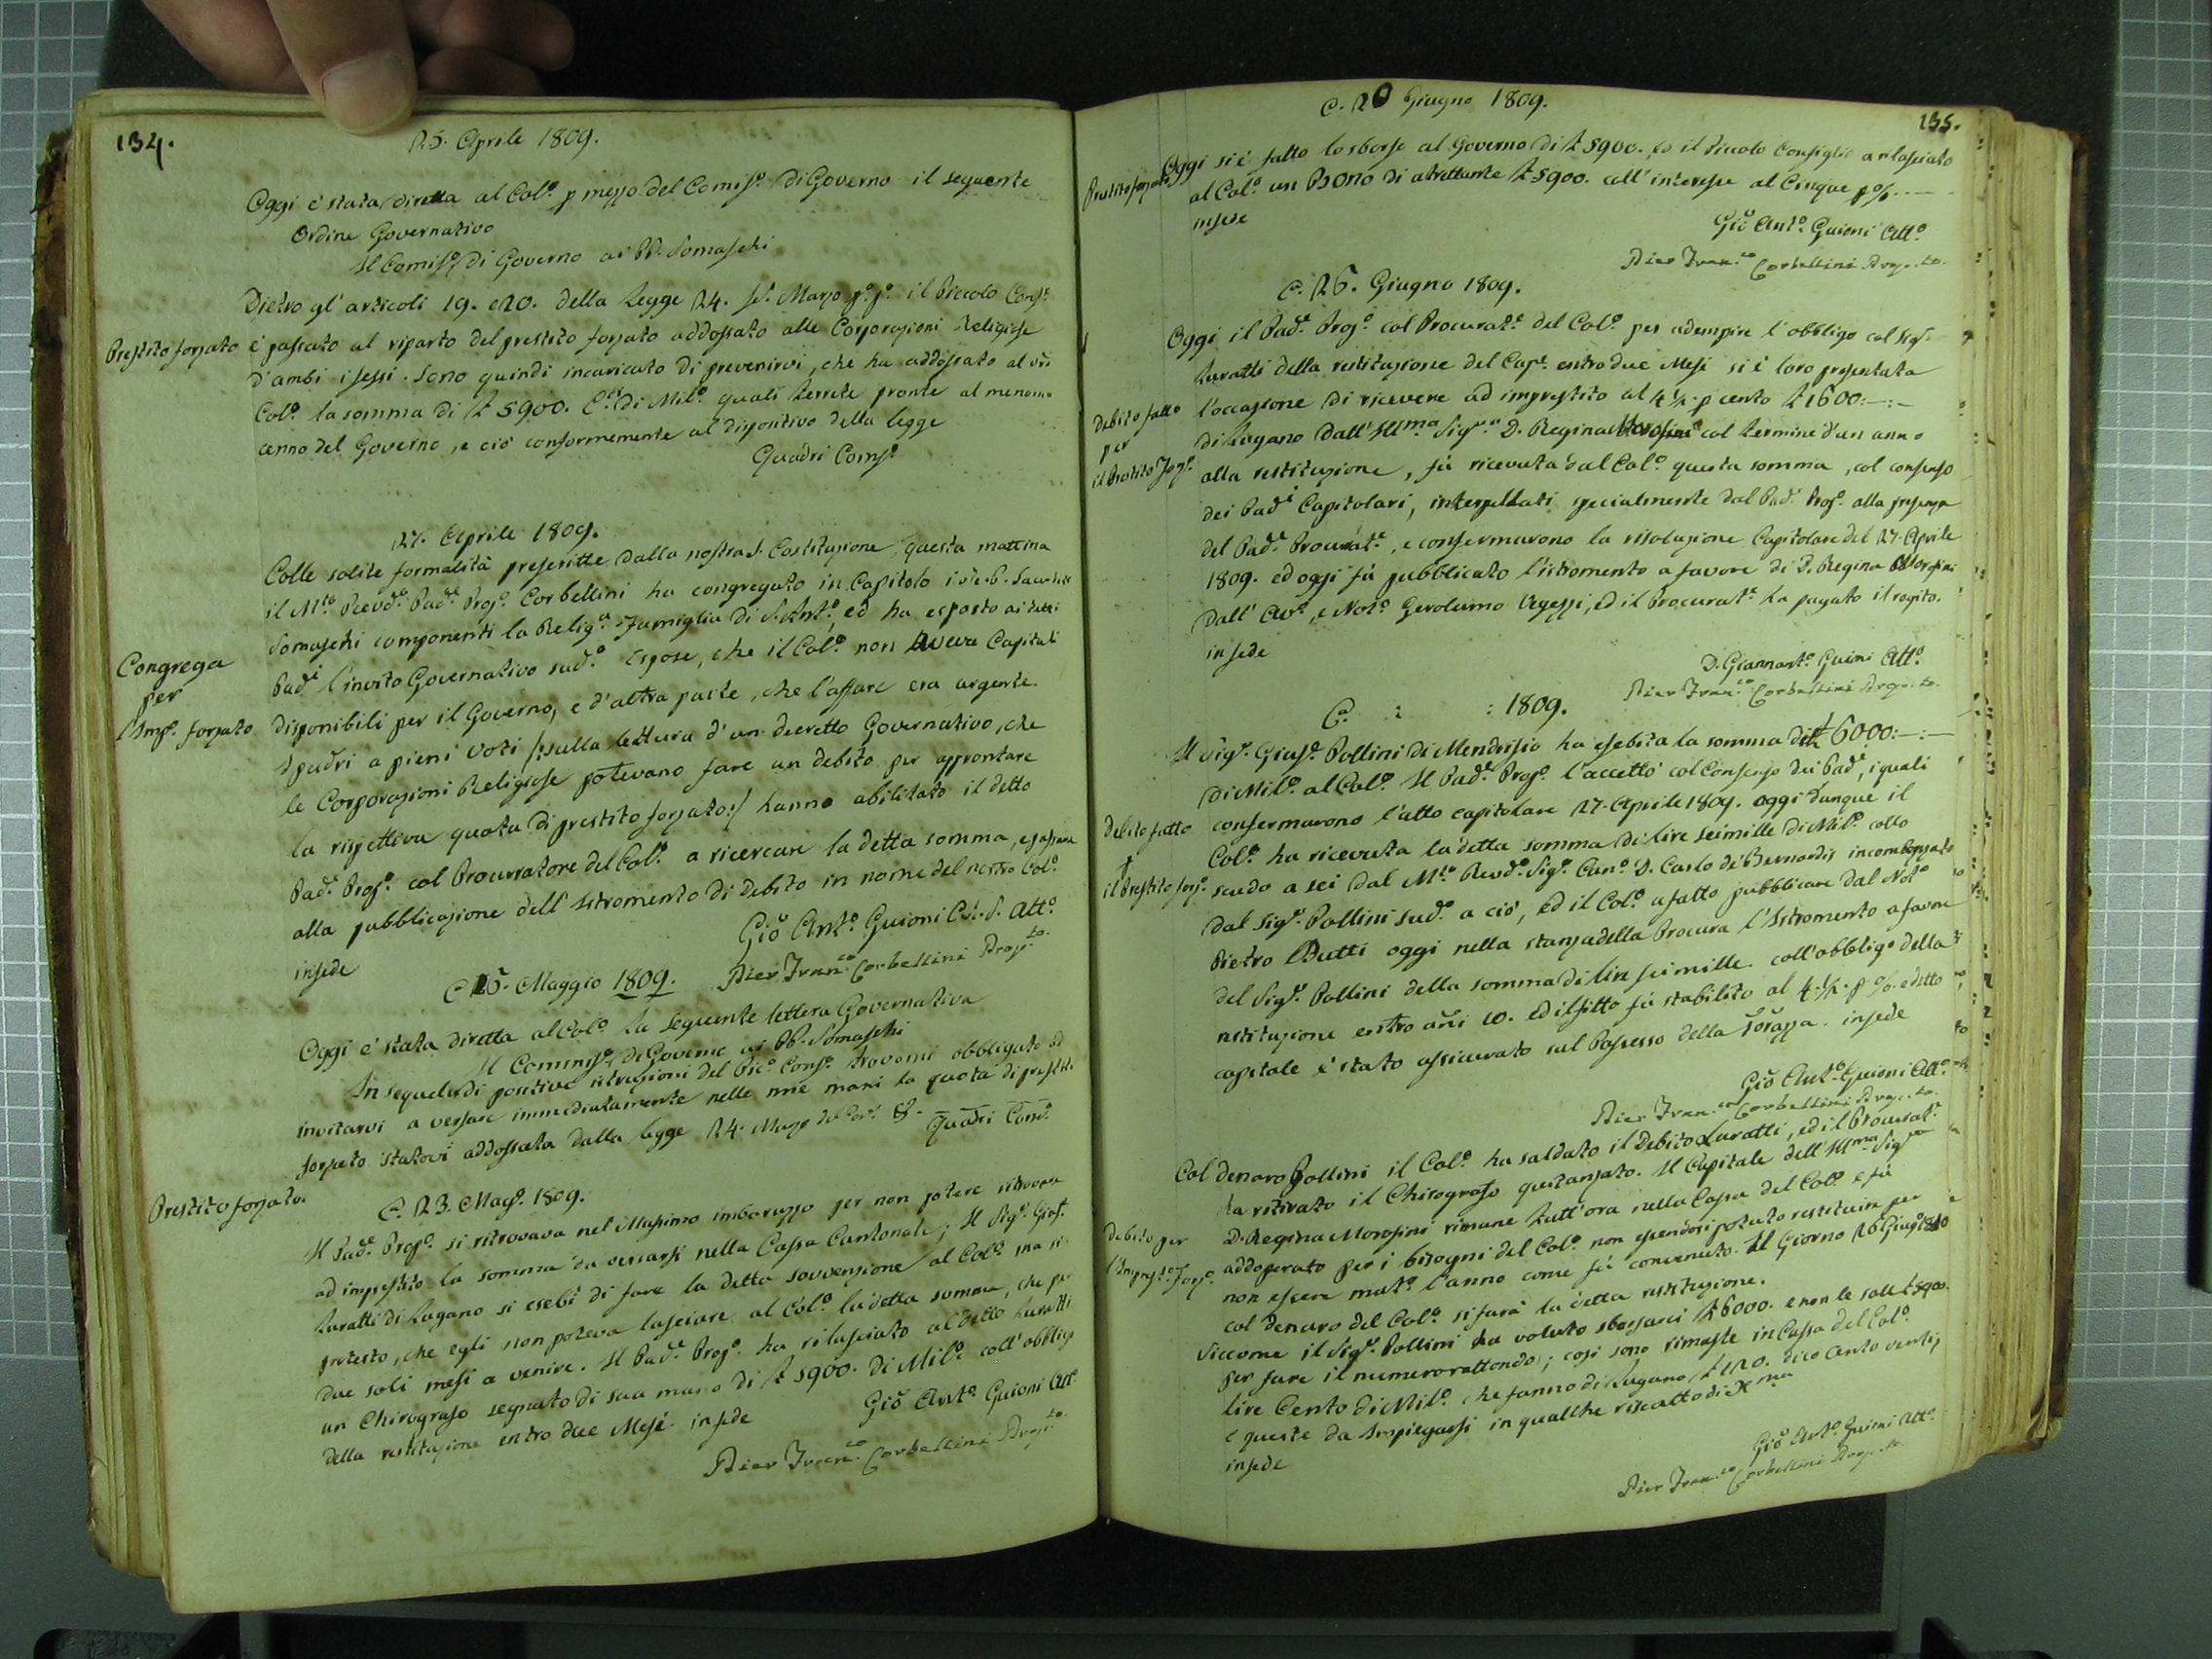 134.
25. Aprile 1809.
Oggi è stata diretta al Col.º p mezzo del Comiss.º di Governo il seguente
Ordine Governativo
Il Comiss.º di Governo ai PP. Somaschi
Prestito forzato
Dietro gl' articoli 19. e 20. della Legge 24. Marzo p.º p.º il Piccolo Cons.º
è passato al riparto del prestito forzato addossato alle Corporazioni Religiose
d'ambi i sessi. Sono quindi incaricato di prevenirvi, che ha addossato al
Col.º la somma di £ 5900. di Mil.º quali terrete pronte al menomo
cenno del Governo, e ciò conformemente al dispositivo della legge
Quadri Comis.º
27. Aprile 1809.
Congrega
per
l'Imp.º forzato
Colle solite formalità prescritte dalla nostra S. Costituzione, questa mattina
il M.to Revd.º Pad.e Prop.º Corbellini ha congregato in Capitolo
Somaschi componenti la Relig.a Famiglia di S. Ant.º, ed ha esposto ai
Pad.i l'invito Governativo sud.º Espose, che il Col.º non aveva Capitali
disponibili per il Governo, e d'altra parte, che l'affare era urgente.
I padri a pieni voti /:sulla lettura d'un decretto Governativo, che
le Corporazioni Religiose potevano fare un debito per approntare
la rispettiva quota di prestito forzato:/ hanno abilitato il detto
Pad.e Prop.º col Procuratore del Col.º a ricercare la detta somma,
alla pubblicazione dell' Istromento di Debito in nome del nostro Col.º
in fede
Giõ Ant.º Guioni C.R.S. Att.º
Pier Fran.co Corbellini Prop.to
15. Maggio 1809.
Oggi è stata diretta al Col.º la seguente lettera Governativa
Il Commiss.º di Governo ai PP. Somaschi
In sequela di positive istruzioni del Pic.º Cons.º trovomi obbligato ad
invitarvi a versare immediatamente nelle mie mani la quota di prestito
forzato statovi addossata dalla legge 24. Marzo
Quadri Com.º
Prestito forzato.
23. Mag.º 1809.
Il Pad.e Prop.º si ritrovava nel Massimo imbarazzo per non potere ritrovare
ad imprestito la somma da versarsi nella Cassa Cantonale; Il Sig.r Gius.e
Luratti di Lugano si esebì di fare la detta sovvenzione al Col.º ma si
protestò, che egli non poteva lasciare al Col.º la detta somma, che per
due soli mesi a venire. Il Pad.e Prop.º ha rilasciato al detto Luratti
un Chirografo segnato di sua mano di £ 5900. di Mil.º coll' obbligo
della restituzione entro due Mesi in fede
Giõ Ant.º Guioni Att.º
Pier Fran.co Corbellini Prop.to
135.
20 Giugno 1809.
Prestito forzato
Oggi si è fatto lo sborso al Governo di £ 5900. ed il Piccolo Consiglio a rilasciato
al Col.º un Bono di altrettante £ 5900. coll' interesse al Cinque p%
in fede
Giõ Ant.º Guioni Att.º
Pier Fran.co Corbellini Prop.to
26. Giugno 1809.
Debito fatto
per
il Prestito Forz.º
Oggi il Pad.e Prop.º col Procurat.e del Col.º per adempire l'obbligo col Sig.r
Luratti della restituzione del Cap.e entro due Mesi si è loro presentata
l'occasione di ricevere ad imprestito al 4 ½ p cento £ 1600:—:—
di Lugano dall' Ill.ma Sig.ra D. Regina Morosini col termine d'un anno
alla restituzione, fù ricevuta dal Col.º questa somma, col consenso
dei Pad.i Capitolari, interpellati specialmente dal Pad.e Prop.º alla presenza
del Pad.e Procurat.e, e confermarono la risoluzione Capitolare del 27. Aprile
1809. ed oggi fù pubblicato l'istromento a favore di D. Regina Morosini
dall' Avv.º, e Not.º Gerolamo Agezzi, ed il Procurat.e ha pagato il rogito.
in fede
D. Giannant.º Guioni Att.º
Pier Fran.co Corbellini Prop.to
: : 1809.
Debito fatto
p
il Prestito forz.º
Il Sig.r Gius.e Pollini di Mendrisio ha esebita la somma di £ 6000:—:—
di Mil.º al Col.º Il Pad.e Prop.º l'accettò col Consenso dei Pad.i, i quali
confermarono l'atto capitolare 27. Aprile 1809. Oggi dunque il
Col.º ha ricevuta la detta somma di lire seimille di Mil.º collo
scudo a sei dal M.to Revd.º Sig.r Can.º D. Carlo de' Bernardis
dal Sig.r Pollini sud.º a ciò, ed il Col.º a fatto pubblicare dal Not.º
Pietro Butti oggi nella stanza della Procura l'Istromento a favore
del Sig.r Pollini della somma di lire seimille coll' obbligo della
restituzione entro añi 10. ed il fitto fù stabilito al 4. ½. p %. e detto
capitale è stato assicurato sul Possesso della in fede
Giõ Ant.º Guioni Att.º
Pier Fran.co Corbellini Prop.to
Debito per
l'Imprest.º Forz.º
Col denaro Pollini il Col.º ha saldato il Debito Luratti, ed il Procurat.e
ha ritirato il Chirografo quitanzato. Il Capitale dell' Ill.ma Sig.ra
D. Regina Morosini rimane tutt'ora nella Cassa del Col.º e fù
addoperato per i bisogni del Col.º non essendosi potuto restituire per
non essere mat.º l'anno come fù convenuto. Il Giorno 26 Giug.º 1810
col denaro del Col.º si farà la detta restituzione.
Siccome il Sig.r Pollini ha voluto sborsarci £ 6000. e non le sole £ 5900.
per fare il numero rottondo; così sono rimaste in Cassa del Col.º
lire Cento di Mil.º che fanno di Lugano £ 120. dico Cento venti,
e queste da Impiegarsi in qualche riscatto di
in fede
Giõ Ant.º Guioni Att.º
Pier Fran.co Corbellini Prop.to